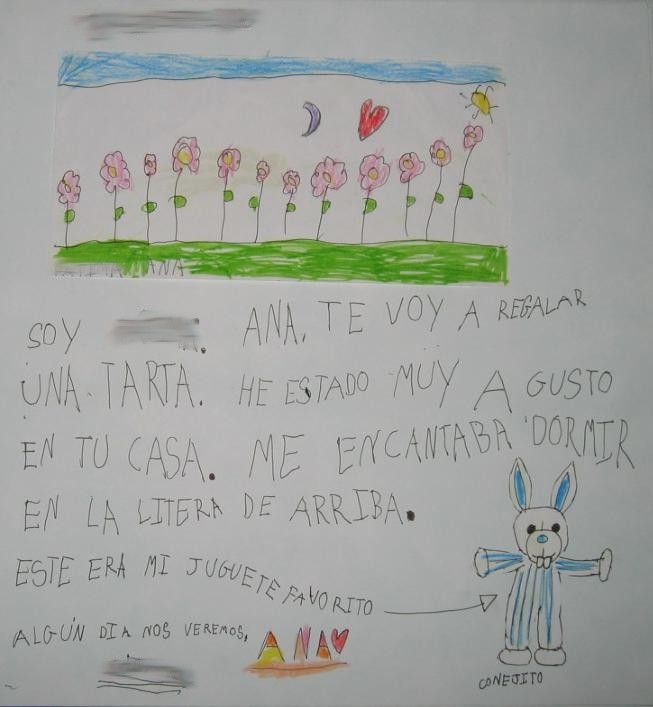 ANA
SOY ANA, TE VOY A REGALAR
UNA TARTA. HE ESTADO MUY A GUSTO
EN TU CASA. ME ENCANTABA DORMIR
EN LA LITERA DE ARRIBA.
ESTE ERA MI JUGUETE FAVORITO
ALGÚN DIA NOS VEREMOS, ANA
CONEJITO